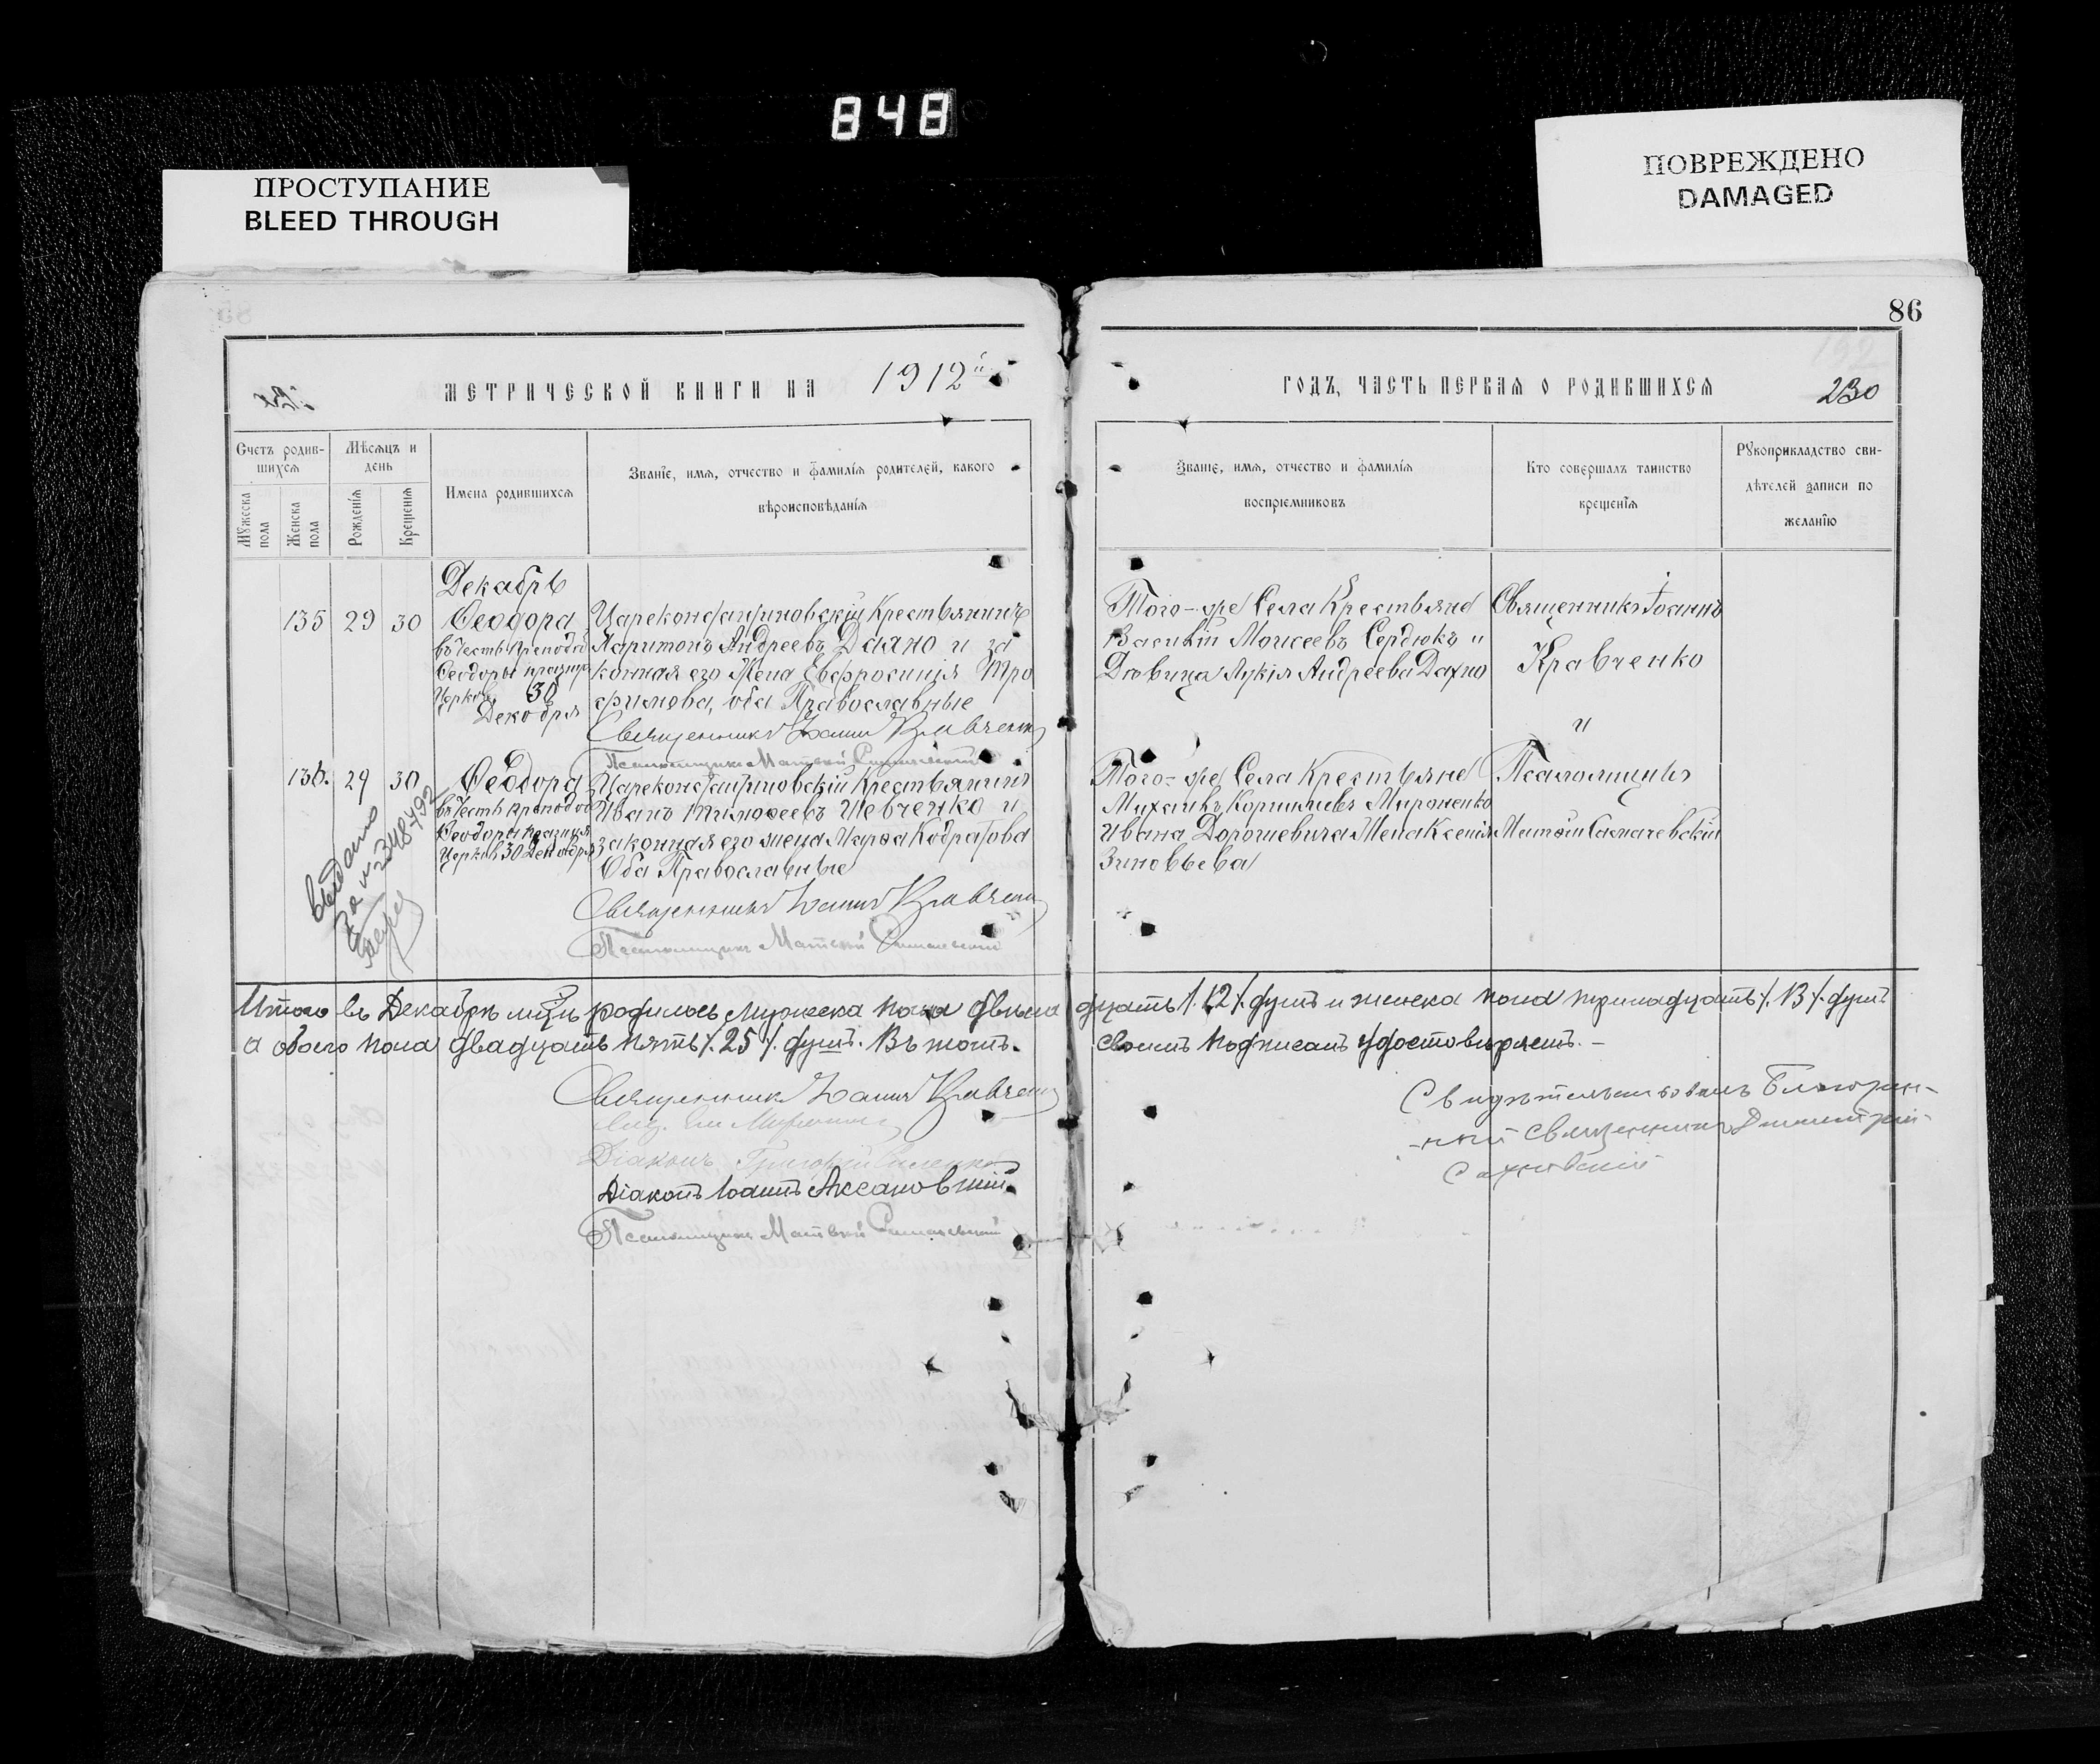 848
ПРОСТУПАНИЕ
BLEED THROUGH
ПОВРЕЖДЕНО
DAMAGED
86
МЕТРИЧЕСКОЙ КНИГИ НА 1912й
ГОДЪ, ЧАСТЬ ПЕРВАЯ О РОДИВШИХСЯ
230
Счетъ родив-
шихся
Мѣсяцъ и
день
Мужеска
пола
Женска
пола
Рожденія
Крещенія
Имена родившихся
Званіе, имя, отчество и фамилія родителей, какого
вѣроисповѣданія
Званіе, имя, отчество и фамилія
воспріемниковъ
Кто совершалъ таинство
крещенія
Рукоприкладство сви-
дѣтелей записи по
желанію
Декабрь
135 29 30 Ѳеодора
въ честь преподоб
Ѳеодоры праздн
Церков 30
Декобря
Цареконстантиновскій Крестьянинъ
Харитонъ Андреевъ Дахно и за
конная его Жена Евфросинія Тро
фимова, оба Православные
Священникъ Іоаннъ Кравченко
Псаломщикъ Матѳей
Того-же Села Крестьяне
Василій Моисеевъ Сердюкъ и
Дѣвица Лукія Андреева Дахно
Священникъ Іоаннъ
Кравченко
и
136. 29 30 Ѳеодора
въ честь преподоб
Ѳеодоры праздн
Церков 30 Декобря
Цареконстантиновскій Крестьянинъ
Иванъ Тимоѳеевъ Шевченко и
законная его жена Марѳа Кодратова
Оба Православные
Священникъ Іоаннъ Кравченко
Псаломщикъ Матѳей
Того-же Села Крестьяне
Михаилъ Корнилиевъ Мироненко
Ивана Дорошевича Жена Ксенія
Зиновьева
Псаломщикъ
Матѳей
Выдано
за №
Итого въ Декабрѣ м-цѣ родилось мужеска пола двѣна
дцать /.12/. душъ и женска пола тринадцать /.13/. душъ
а обоего пола двадцать пять /.25/. душъ. Въ томъ
своимъ подписомъ удостовѣряемъ.-
Священникъ Іоаннъ Кравченко
Діаконъ Григорій
Діаконъ Іоаннъ Аксановскій
Псаломщикъ Матѳей
Свидѣтельствовалъ Благочин-
-ный Священникъ Димитрій
Сахновскій